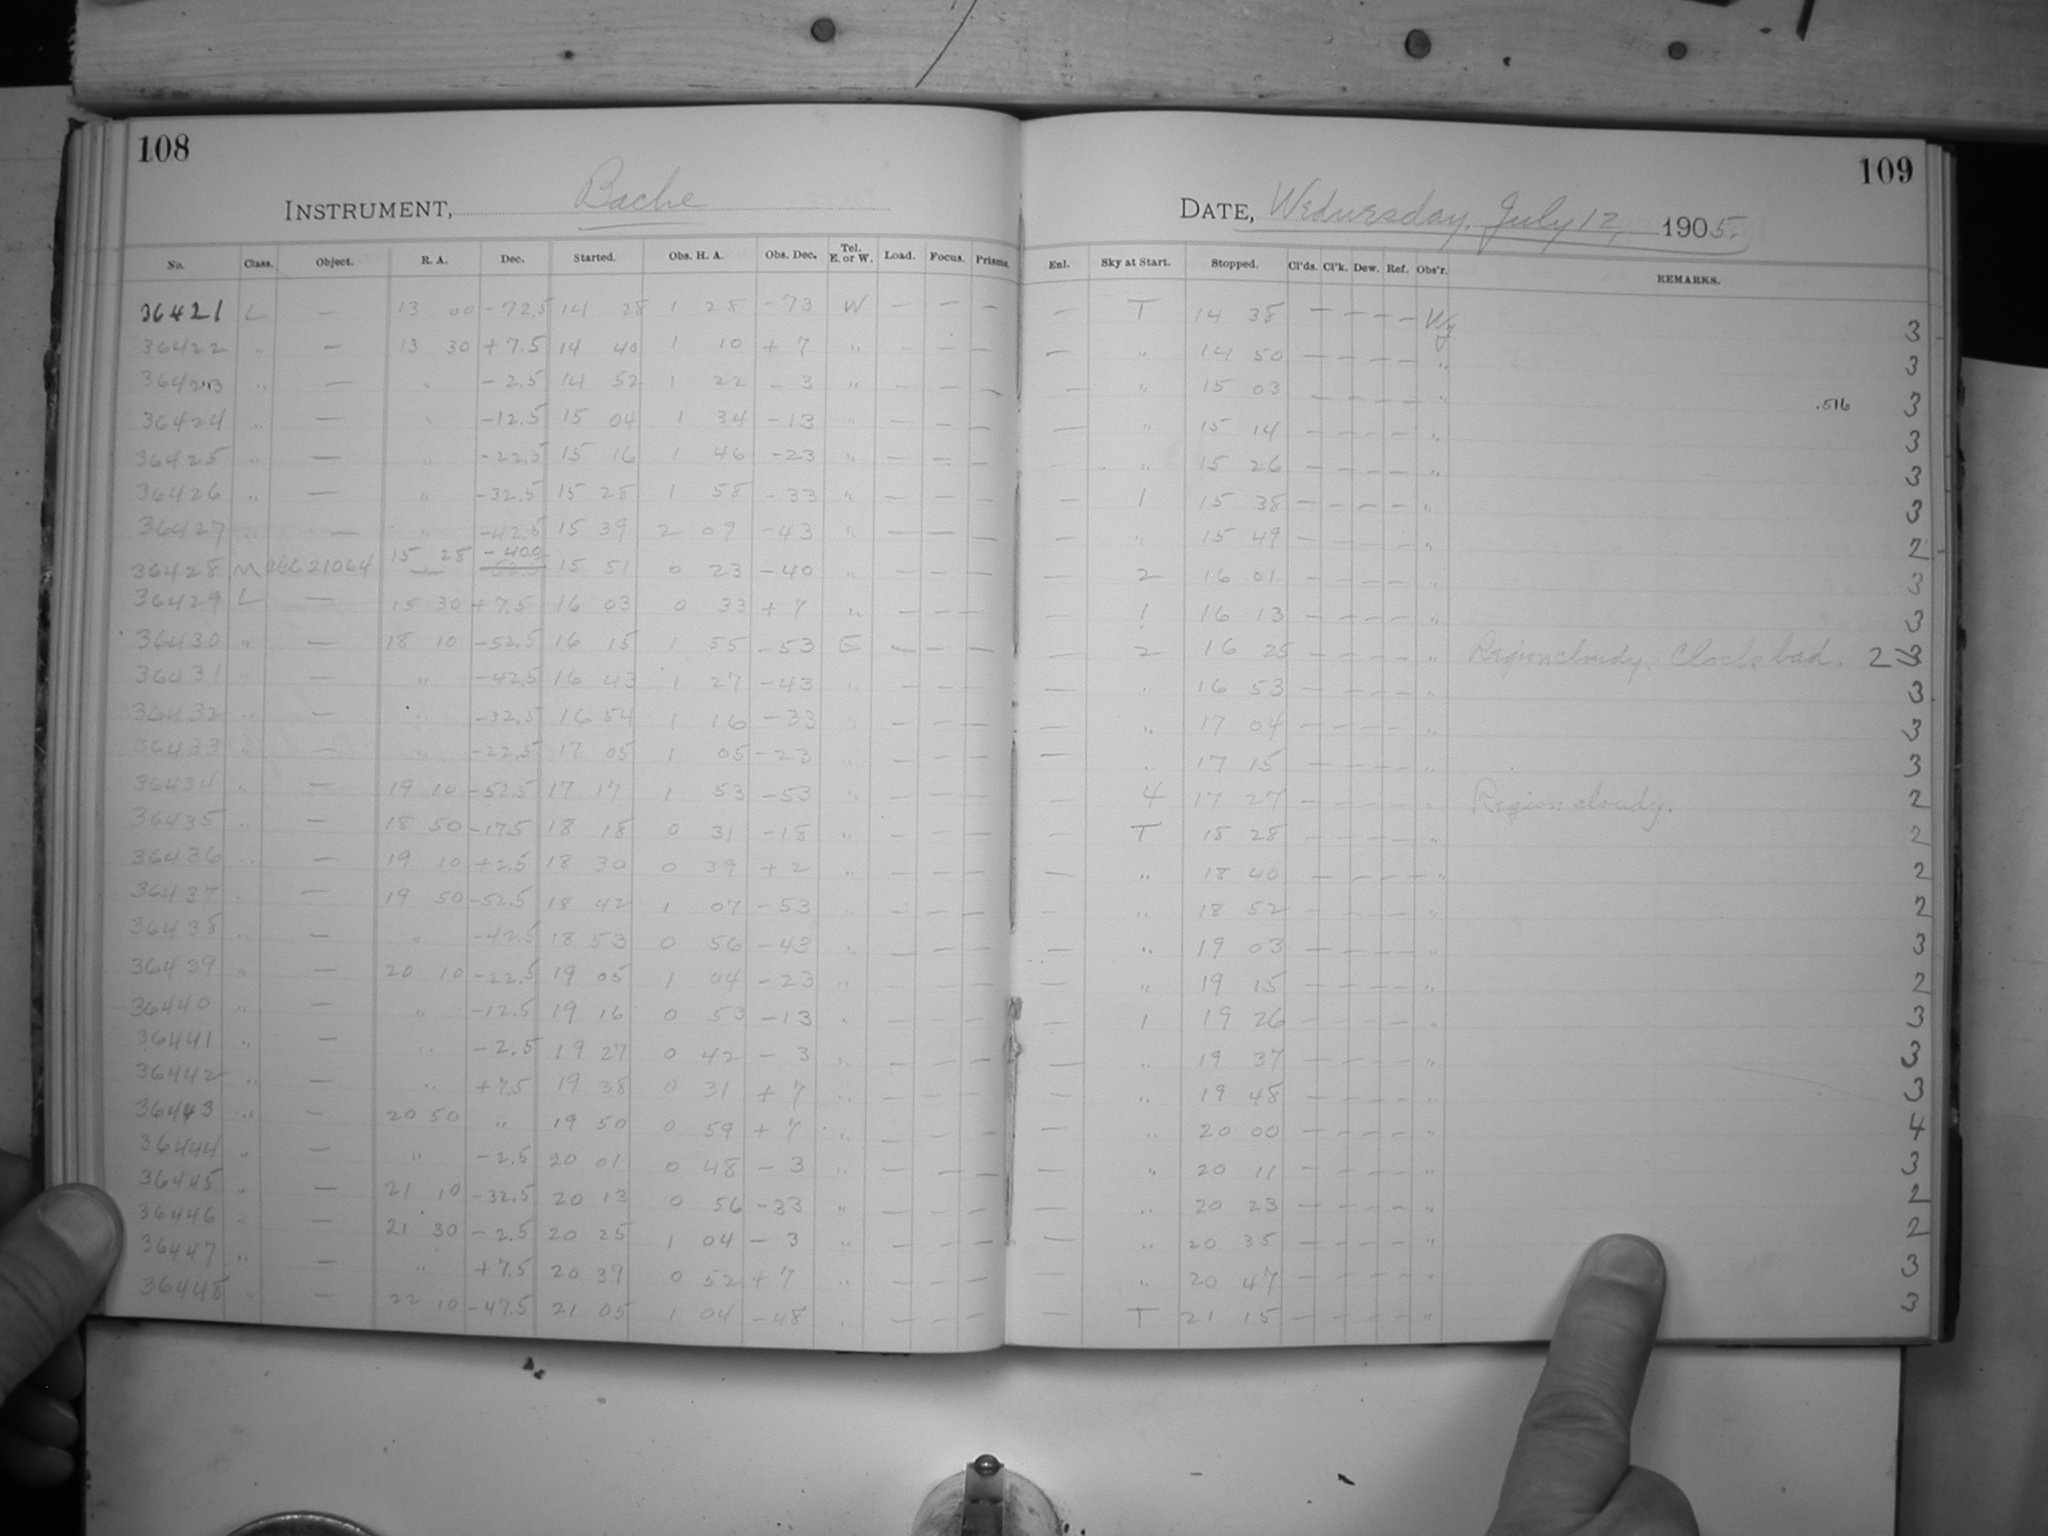 108
109
INSTRUMENT, Bache
DATE, Wednesday, July 12, 1905.
No. Class. Object. R. A. Dec. Started. Obs. H. A. Obs. Dec. Tel. E. or W. Load. Focus. Prisms. Enl. Sky at Start. Stopped. Cl'ds. Cl'k. Dew. Ref. Obs'r. REMARKS.
36421 L — 13 00 -72.5 14 28 1 28 -73 W — — — — T 14 38 — — — — Wy 3
36422 " — 13 30 +7.5 14 40 1 10 +7 " — — — — " 14 50 — — — — " 3
36423 " — " -2.5 14 52 1 22 -3 " — — — — " 15 03 — — — — " .516 3
36424 " — " -12.5 15 04 1 34 -13 " — — — — " 15 14 — — — — " 3
36425 " — " -22.5 15 16 1 46 -23 " — — — — " 15 26 — — — — " 3
36426 " — " -32.5 15 28 1 58 -33 " — — — — 1 15 38 — — — — " 3
36427 " — " -42.5 15 39 2 09 -43 " — — — — " 15 49 — — — — " 2
36428 M 21064 15 28 -40.0 15 51 0 23 -40 " — — — — 2 16 01 — — — — " 3
36429 L — 15 30 +7.5 16 03 0 33 +7 " — — — — 1 16 13 — — — — " 3
36430 " — 18 10 -52.5 16 15 1 55 -53 E — — — — 2 16 25 — — — — " Region cloudy. Clock bad. 2 3
36431 " — " -42.5 16 43 1 27 -43 " — — — — " 16 53 — — — — " 3
36432 " — " -32.5 16 54 1 16 -33 " — — — — " 17 04 — — — — " 3
36433 " — " -22.5 17 05 1 05 -23 " — — — — " 17 15 — — — — " 3
36434 " — 19 10 -52.5 17 17 1 53 -53 " — — — — 4 17 27 — — — — " Region cloudy. 2
36435 " — 18 50 -17.5 18 18 0 31 -18 " — — — — T 18 28 — — — — " 2
36436 " — 19 10 +2.5 18 30 0 39 +2 " — — — — " 18 40 — — — — " 2
36437 " — 19 50 -52.5 18 42 1 07 -53 " — — — — " 18 52 — — — — " 2
36438 " — " -42.5 18 53 0 56 -43 " — — — — " 19 03 — — — — " 3
36439 " — 20 10 -22.5 19 05 1 04 -23 " — — — — " 19 15 — — — — " 2
36440 " — " -12.5 19 16 0 53 -13 " — — — — 1 19 26 — — — — " 3
36441 " — " -2.5 19 27 0 42 -3 " — — — — " 19 37 — — — — " 3
36442 " — " +7.5 19 38 0 31 +7 " — — — — " 19 48 — — — — " 3
36443 " — 20 50 " 19 50 0 59 +7 " — — — — " 20 00 — — — — " 4
36444 " — " -2.5 20 01 0 48 -3 " — — — — " 20 11 — — — — " 3
36445 " — 21 10 -32.5 20 13 0 56 -33 " — — — — " 20 23 — — — — " 2
36446 " — 21 30 -2.5 20 25 1 04 -3 " — — — — " 20 35 — — — — " 2
36447 " — " +7.5 20 37 0 52 +7 " — — — — " 20 47 — — — — " 3
36448 " — 22 10 -47.5 21 05 1 04 -48 " — — — — T 21 15 — — — — " 3